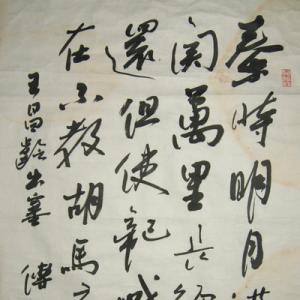 秦時明月漢
関萬里長征
還但使龍城
在不教胡馬度
王昌齡出塞